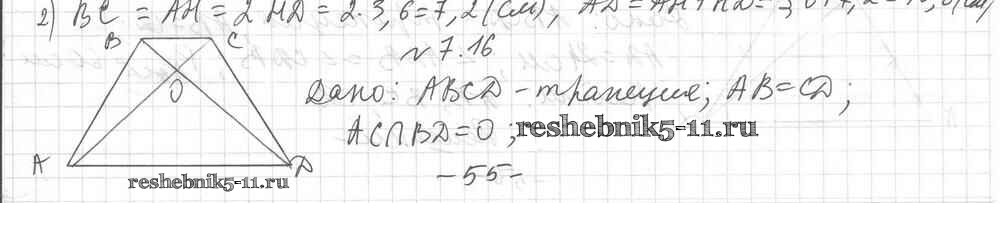 2) BC = AH = 2 HD = 2·3,6=7,2(см), AD = AH+HD=
N 7.16
B C
O
Дано: ABCD - трапеция; AB=CD;
AC∩BD=O; reshebnik5-11.ru
A D
reshebnik5-11.ru
-55-